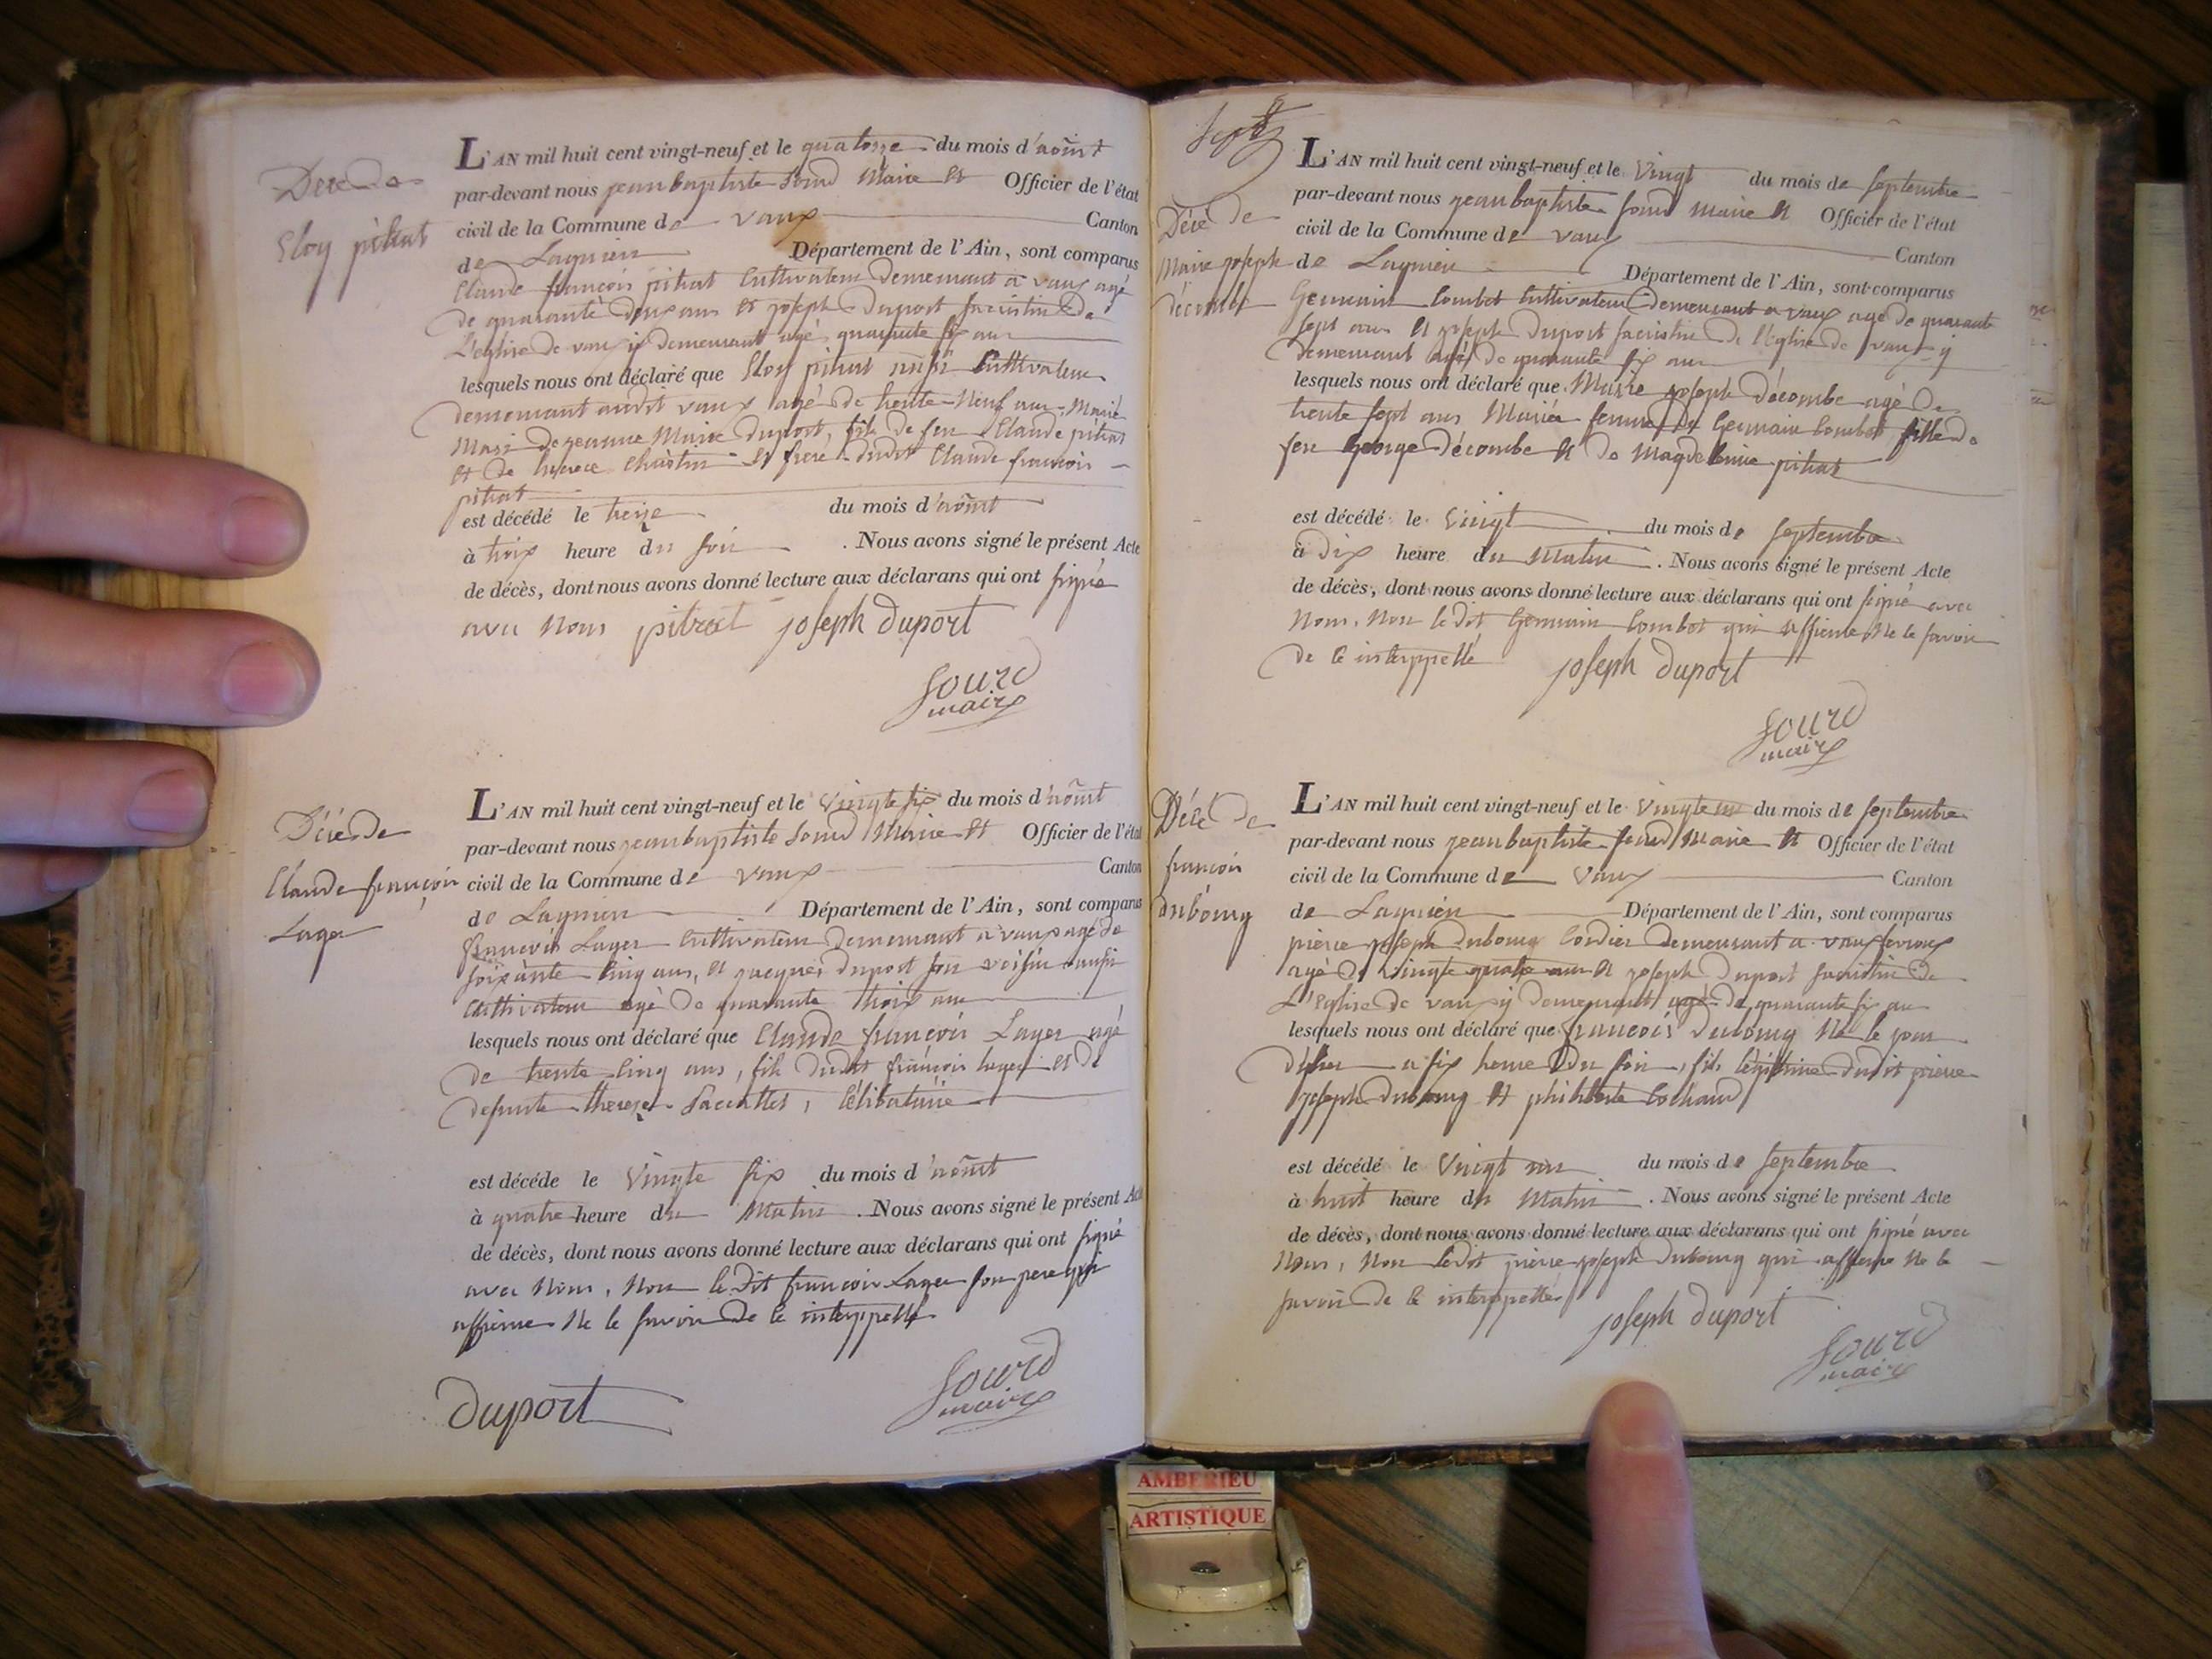 Décè de
Eloy pitrat
L'AN mil huit cent vingt-neuf et le quatorze du mois d'aoûst
par-devant nous jean baptiste Sourd Maire et Officier de l'état
civil de la Commune de vaux Canton
de Lagnieu Département de l'Ain, sont comparus
Claude françois pitrat Cultivateur demeurant a vaux agé
de quarante deux ans et joseph duport sacristin de
L'eglise de vaux y demeurant agé quarante six ans
lesquels nous ont déclaré que Eloy pitrat aussi Cultivateur
demeurant audit vaux agé de trente Neuf ans, Marié
Mari de jeanne Marie duport, fils de feu Claude pitrat
et de et frere dudit Claude françois
pitrat
est décédé le treize du mois d'aoûst
à trois heure du soir . Nous avons signé le présent Acte
de décès, dont nous avons donné lecture aux déclarans qui ont signé
avec Nous pitrat joseph duport
Sourd
maire
Décès de
Claude françois
Layer
L'AN mil huit cent vingt-neuf et le Vingte six du mois d'aoûst
par-devant nous jean baptiste Sourd Maire et Officier de l'état
civil de la Commune de vaux Canton
de Lagnieu Département de l'Ain, sont comparus
françois Layer Cultivateur demeurant a vaux agé de
soixante Cinq ans, et jacques duport son voisin aussi
Cultivateur agé de quarante trois ans
lesquels nous ont déclaré que Claude françois Layer agé
de trente Cinq ans, fils dudit françois Layer et de
defunte therese , Célibataire
est décéde le Vingte six du mois d'aoûst
à quatre heure du Matin . Nous avons signé le présent Acte
de décès, dont nous avons donné lecture aux déclarans qui ont signé
avec Nous, Non le dit françois Layer son pere qui
affirme Ne le savoir de ce interppellé
duport
Sourd
maire
Décè de
Marie joseph
décombe
L'AN mil huit cent vingt-neuf et le Vingt du mois de septembre
par-devant nous jean baptiste sourd Maire et Officier de l'état
civil de la Commune de vaux Canton
de Lagnieu Département de l'Ain, sont comparus
Germain Combet Cultivateur demeurant a vaux agé de quarante
sept ans et joseph duport sacristin de l'eglise de vaux y
demeurant agé de quarante six ans
lesquels nous ont déclaré que Marie joseph décombe agé de
trente sept ans Mariée femme de Germain Combet fille de
feu George décombe et de Magdeleine pitrat
est décédé le Vingt du mois de septembre
à dix heure du Matin . Nous avons signé le présent Acte
de décès, dont nous avons donné lecture aux déclarans qui ont signé avec
Nous, Non ledit Germain Combet qui affirme Ne le savoir
de ce interppellé joseph duport
Sourd
maire
Décè de
françois
dubourg
L'AN mil huit cent vingt-neuf et le Vingte un du mois de septembre
par-devant nous jean baptiste sourd Maire et Officier de l'état
civil de la Commune de Vaux Canton
de Lagnieu Département de l'Ain, sont comparus
pierre joseph dubourg Cordier demeurant a vaux
agé de Vingte quatre ans et joseph duport sacristin de
L'Eglise de vaux y demeurant agé de quarante six ans
lesquels nous ont déclaré que françois dubourg Né le jour
d'hier a six heure du soir, fils légitime dudit pierre
joseph dubourg et philiberte
est décédé le Vingt un du mois de septembre
à huit heure du Matin . Nous avons signé le présent Acte
de décès, dont nous avons donné lecture aux déclarans qui ont signé avec
Nous, Non ledit pierre joseph dubourg qui affirme Ne le
savoir de ce interppellé
joseph duport
Sourd
maire
AMBERIEU
ARTISTIQUE